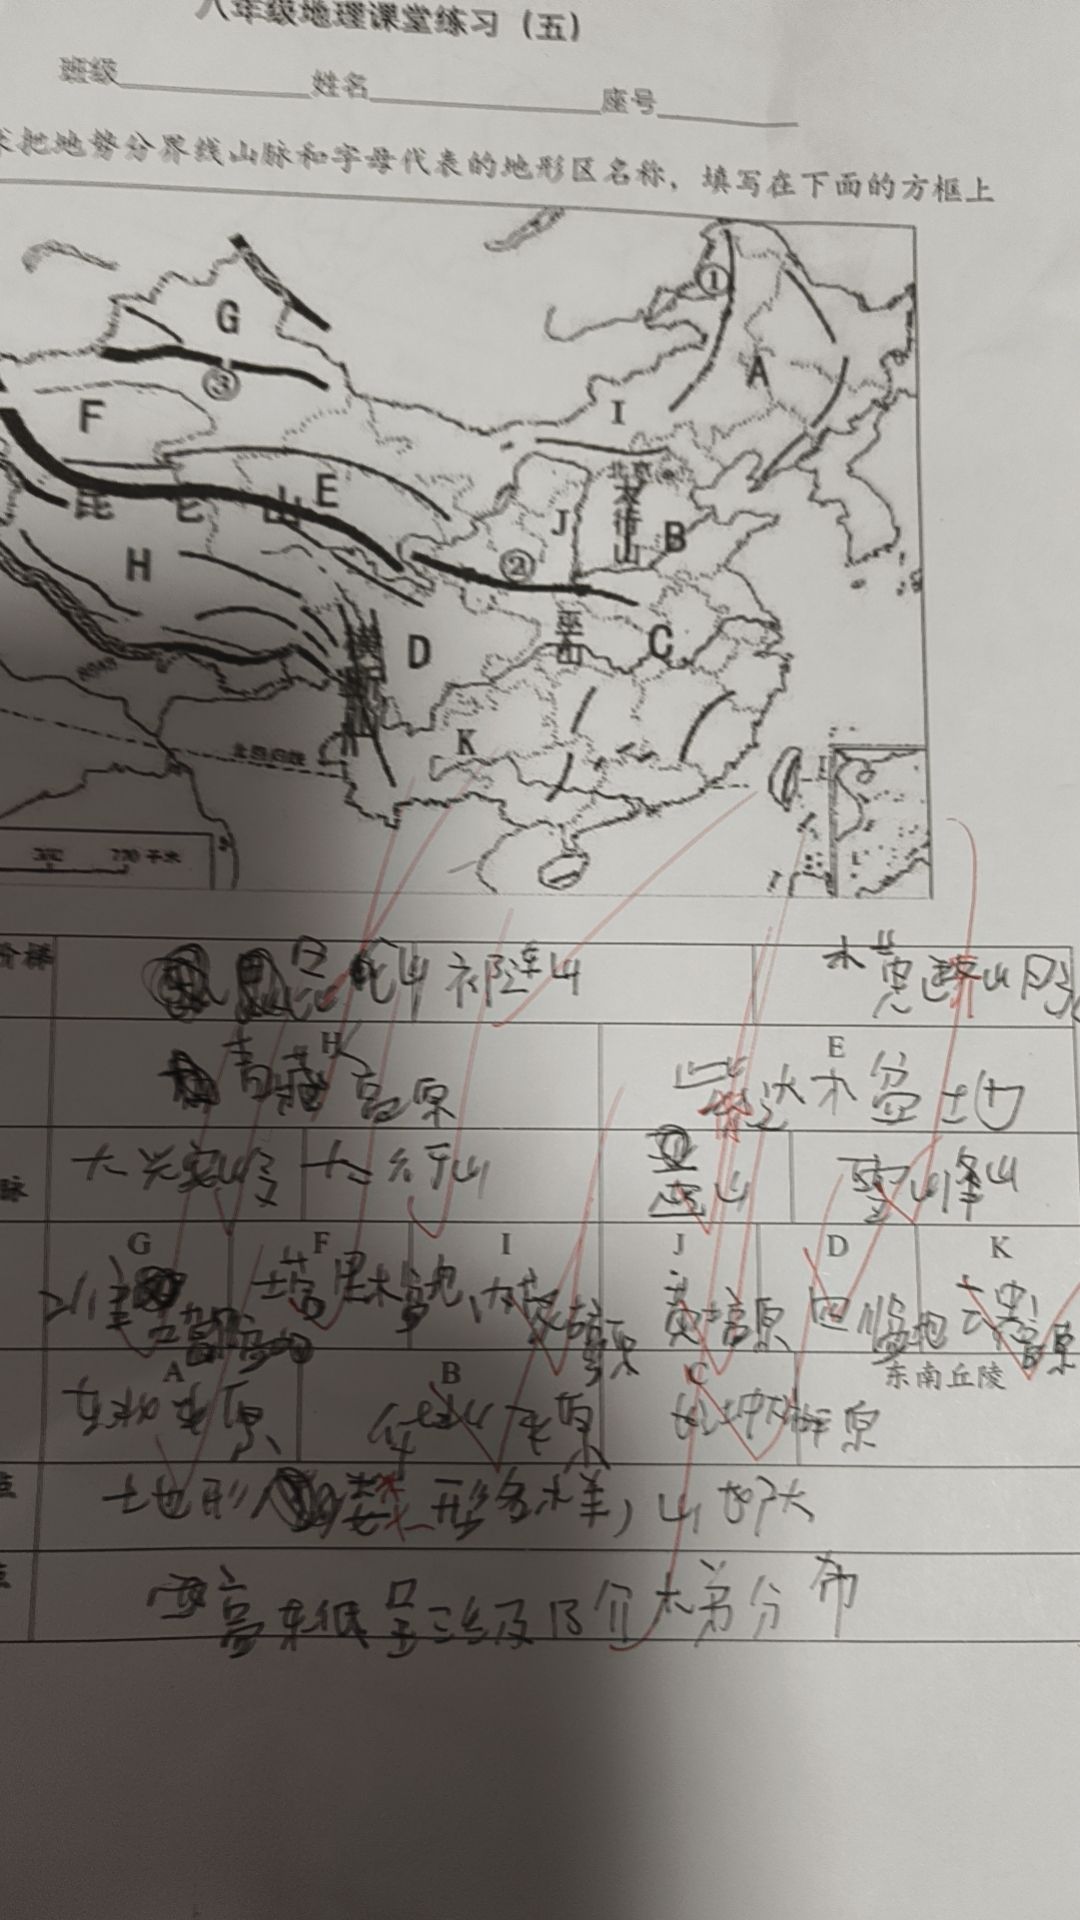 八年级地理课堂练习（五）
班级 姓名 座号
把地势分界线山脉和字母代表的地形区名称，填写在下面的方框上
G
①
③
A
F
I
北京
昆仑山
E
太行山
J
B
②
H
巫山
横断山
D
C
K
北回归线
720千米
阶梯
昆仑山 祁连山 横断山脉
H E
青藏高原 柴达木盆地
大兴安岭 太行山 巫山 雪峰山
脉
G F I J D K
准噶尔盆地 塔里木盆地 内蒙古高原 黄土高原 四川盆地 云贵高原
A B C 东南丘陵
东北平原 华北平原 长江中下游平原
地形
西高东低呈三级阶梯分布